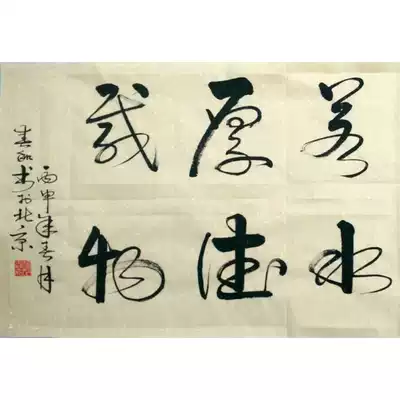 若水
厚德
载物
丙申年春月
书于北京